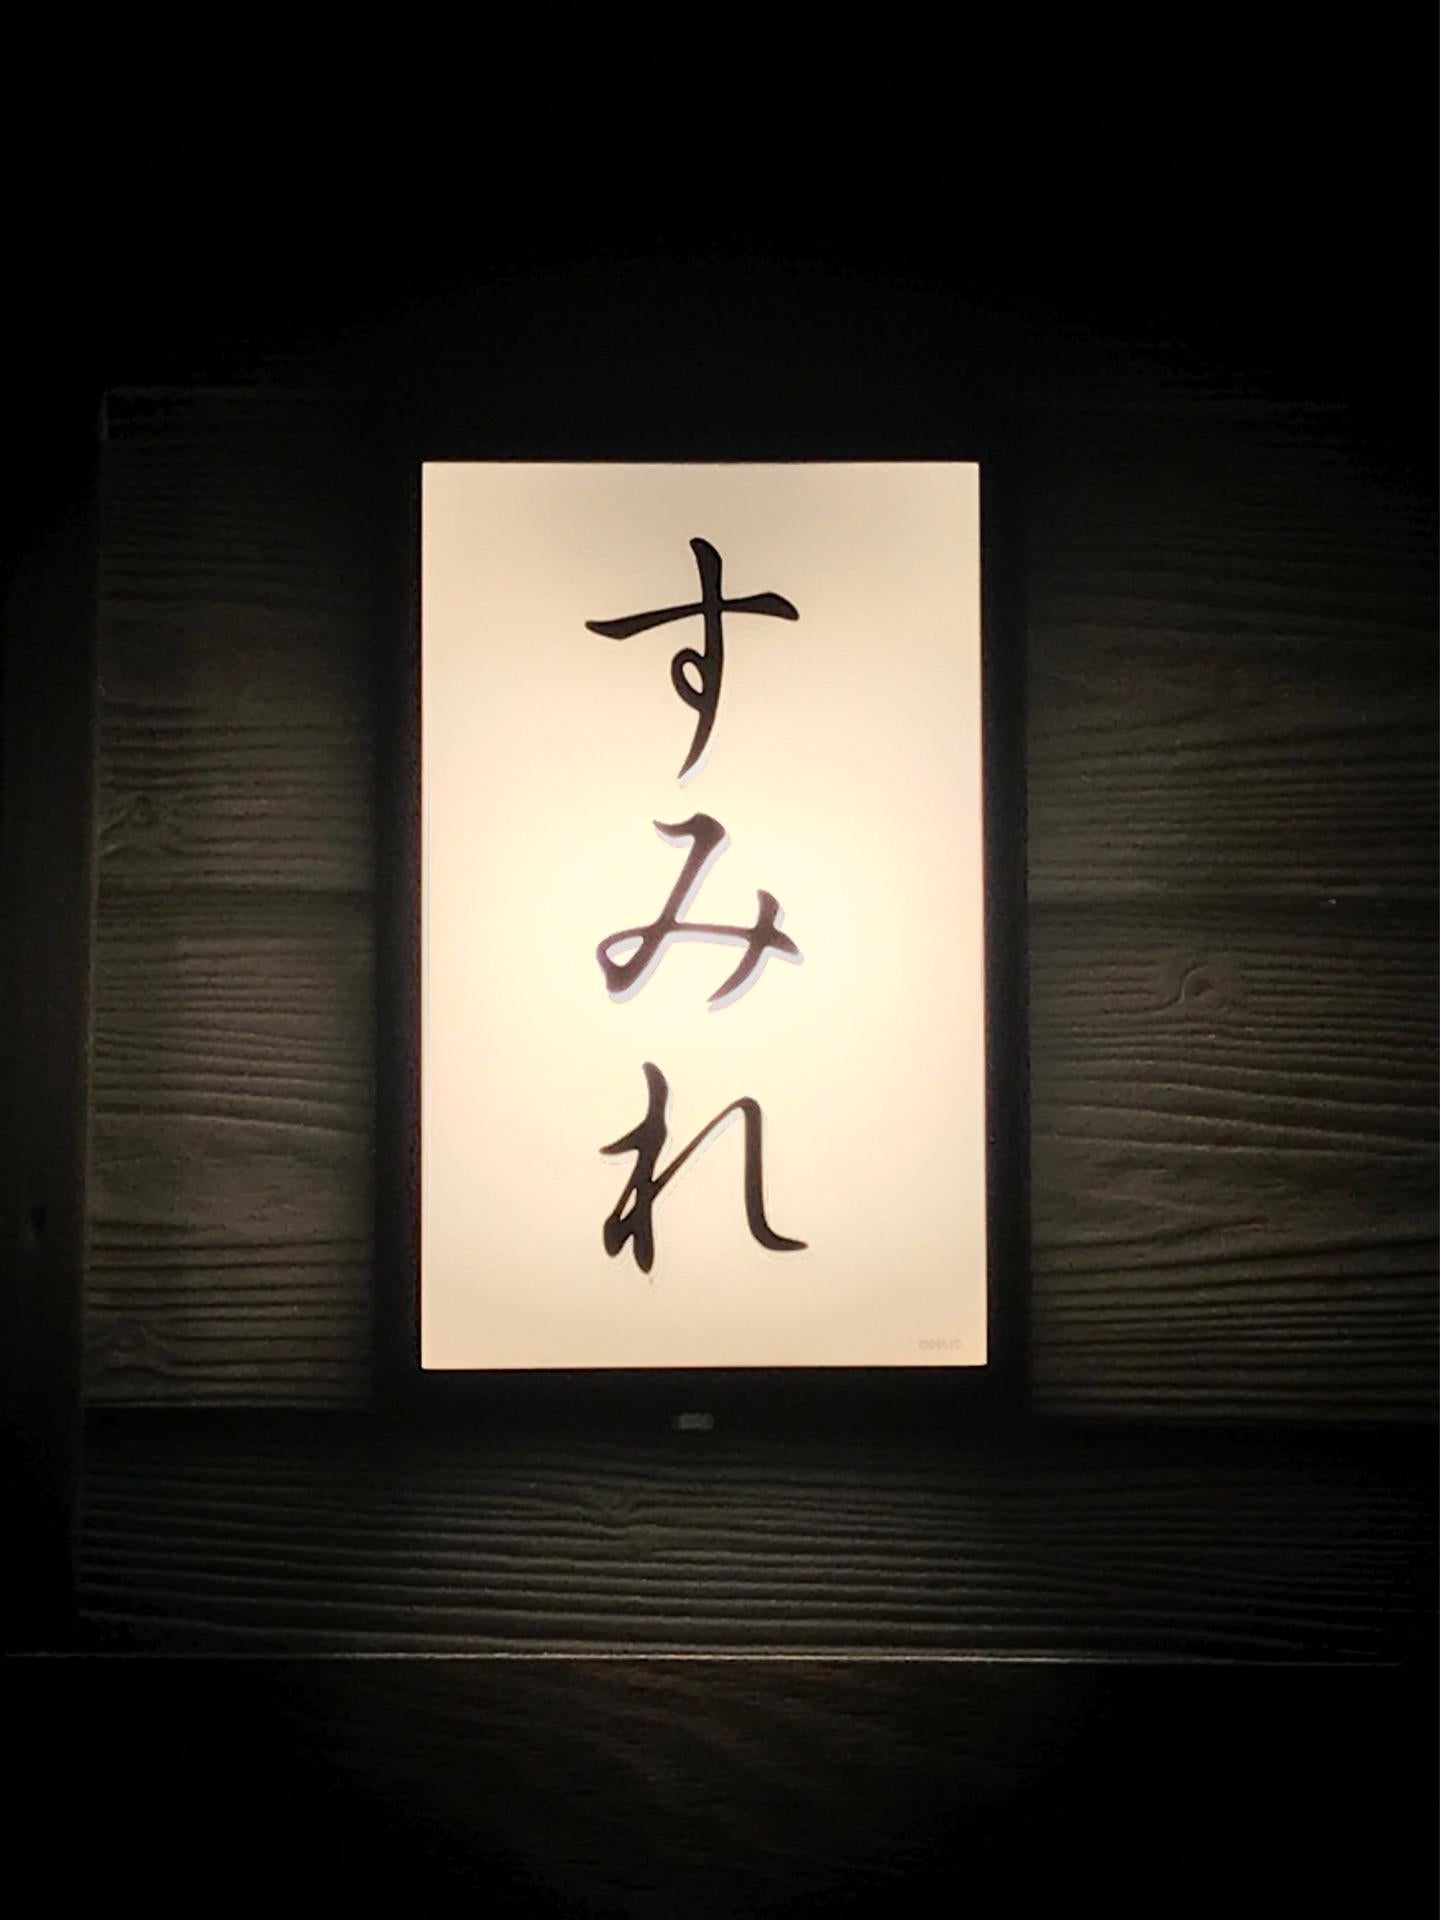 すみれ
ODELIC